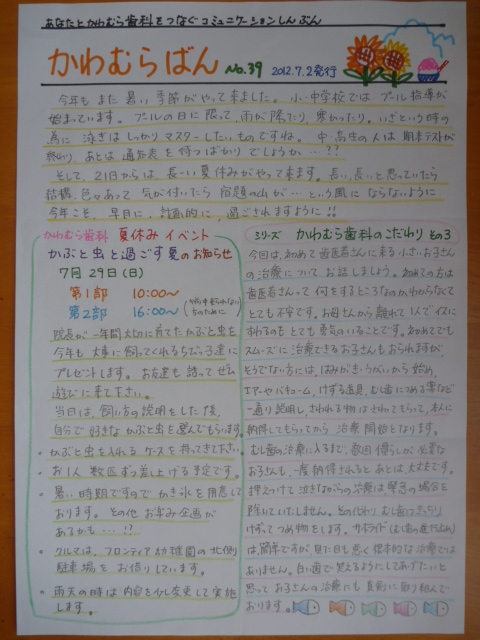 あなたとかわむら歯科をつなぐコミュニケーションしんぶん
かわむらばん No.39 2012.7.2発行
今年もまた暑い季節がやって来ました。小・中学校ではプール指導が
始まっています。プールの日に限って、雨が降たり、寒かったり。いざという時の
為に泳ぎはしっかりマスターしたいものですね。中・高生の人は期末テストが
終わり、あとは通知表を待つばかりでしょうか…??
そして、21日からは、長ーい夏休みがやって来ます。長い、長いと思っていたら
結構、色々あって気が付いたら宿題の山が…という風にならないように
今年こそ、早目に、計画的に、過ごされますように!!
かわむら歯科 夏休みイベント
かぶと虫と過ごす夏のお知らせ
7月29日(日)
第1部 10:00〜
第2部 16:00〜
院長が一年間大切に育てたかぶと虫を
今年も大事に飼ってくれるちびっ子達に
プレゼントします。お友達も誘ってぜひ
遊びに来て下さい。
当日は、飼い方の説明をした後、
自分で好きなかぶと虫を選んでもらいます。
・かぶと虫を入れるケースを持ってきて下さい。
・お1人数匹ずつ差し上げる予定です。
・暑い時期ですのでかき氷を用意して
おります。その他お楽しみ企画が
あるかも…!?
・クルマは、フロンティア幼稚園の北側
駐車場をお借りしています。
・雨天の時は内容を少し変更して実施
します。
シリーズ かわむら歯科のこだわり その3
今回は、初めて歯医者さんに来る小さいお子さん
の治療についてお話しましょう。初めての方は
歯医者さんって何をするところなのかわからなくて
とても不安です。お母さんから離れて1人でイスに
すわるのもとても勇気のいることです。初めてでも
スムーズに治療できるお子さんもおられますが、
そうでない方には、はみがき・うがいから始め、
エアーやバキューム、けずる道具、むし歯につめる薬など
一通り説明し、さわれる物はさわってもらって、本人に
納得してもらってから治療開始となります。
むし歯の治療に入るまで、数回慣らしが必要な
お子さんも、一度納得されるとあとは、大丈夫です。
押えつけて泣きながらの治療は、緊急の場合を
除いていたしません。その代わりむし歯はきっちり
けずってつめ物をします。サホライド(むし歯の進行止め)
は、簡単ですが、見た目も悪く根本的な治療では
ありません。白い歯で笑えるようにしてあげたいと
思ってお子さんの治療にも真剣に取り組んで
おります。